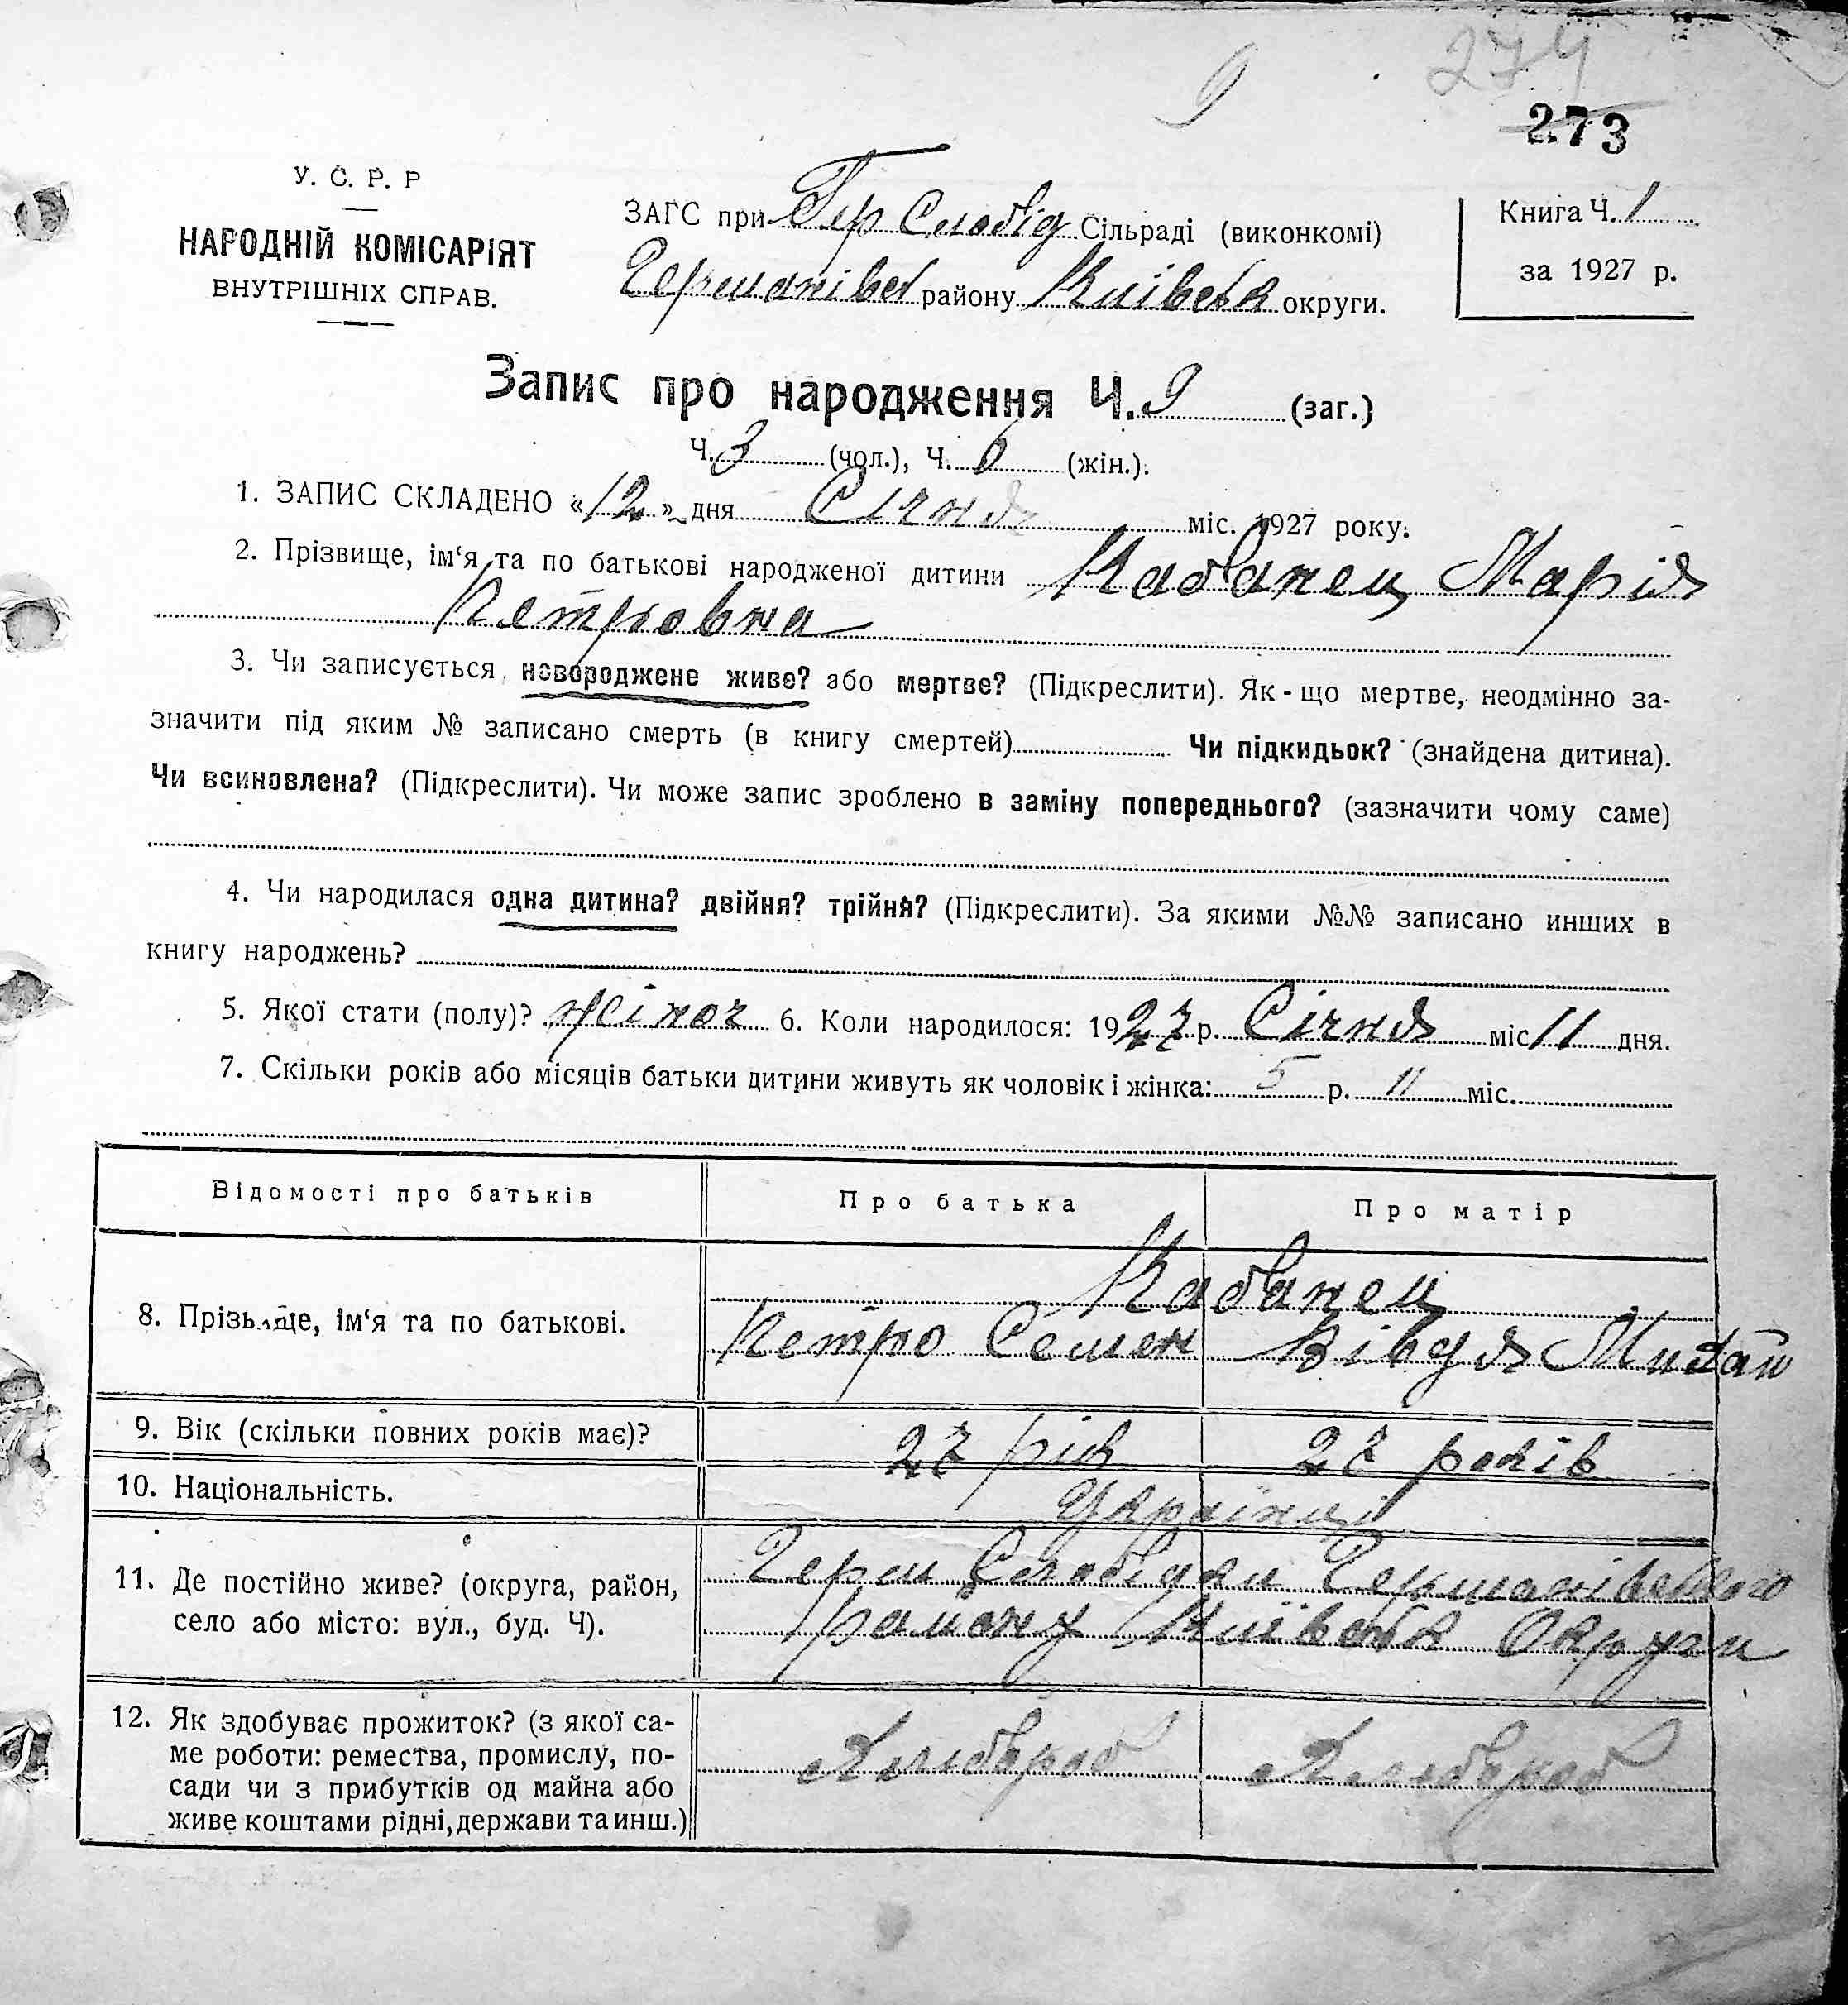 274
9
273
У. С. Р. Р
НАРОДНІЙ КОМІСАРІЯТ
ВНУТРІШНІХ СПРАВ.
ЗАГС при Гер Слобід Сільраді (виконкомі)
Германівсь району Київськ округи.
Книга Ч. 1
за 1927 р.
Запис про народження Ч. 9 (заг.)
Ч. 3 (чол.), Ч. 6 (жін.).
1. ЗАПИС СКЛАДЕНО «12» дня Січня міс. 1927 року.
2. Прізвище, ім‘я та по батькові народженої дитини Кабанец Марія
Петровна
3. Чи записується новороджене живе? або мертве? (Підкреслити). Як-що мертве, неодмінно за-
значити під яким № записано смерть (в книгу смертей) Чи підкидьок? (знайдена дитина).
Чи всиновлена? (Підкреслити). Чи може запис зроблено в заміну попереднього? (зазначити чому саме)
4. Чи народилася одна дитина? двійня? трійня? (Підкреслити). За якими №№ записано инших в
книгу народжень?
5. Якої стати (полу)? жіноч 6. Коли народилося: 1927 р. Січня міс 11 дня.
7. Скільки років або місяців батьки дитини живуть як чоловік і жінка: 5 р. 11 міс.
Відомості про батьків Про батька Про матір
8. Прізвище, ім‘я та по батькові.
Кабанец
Петро Семен Вівдя Михай
9. Вік (скільки повних років має)? 27 рік 27 років
10. Національність. Українці
11. Де постійно живе? (округа, район,
село або місто: вул., буд. Ч).
Герм Слобідки Германівського
району Київськ Округи
12. Як здобуває прожиток? (з якої са-
ме роботи: ремества, промислу, по-
сади чи з прибутків од майна або
живе коштами рідні, держави та инш.)
Хлібороб Хлібороб